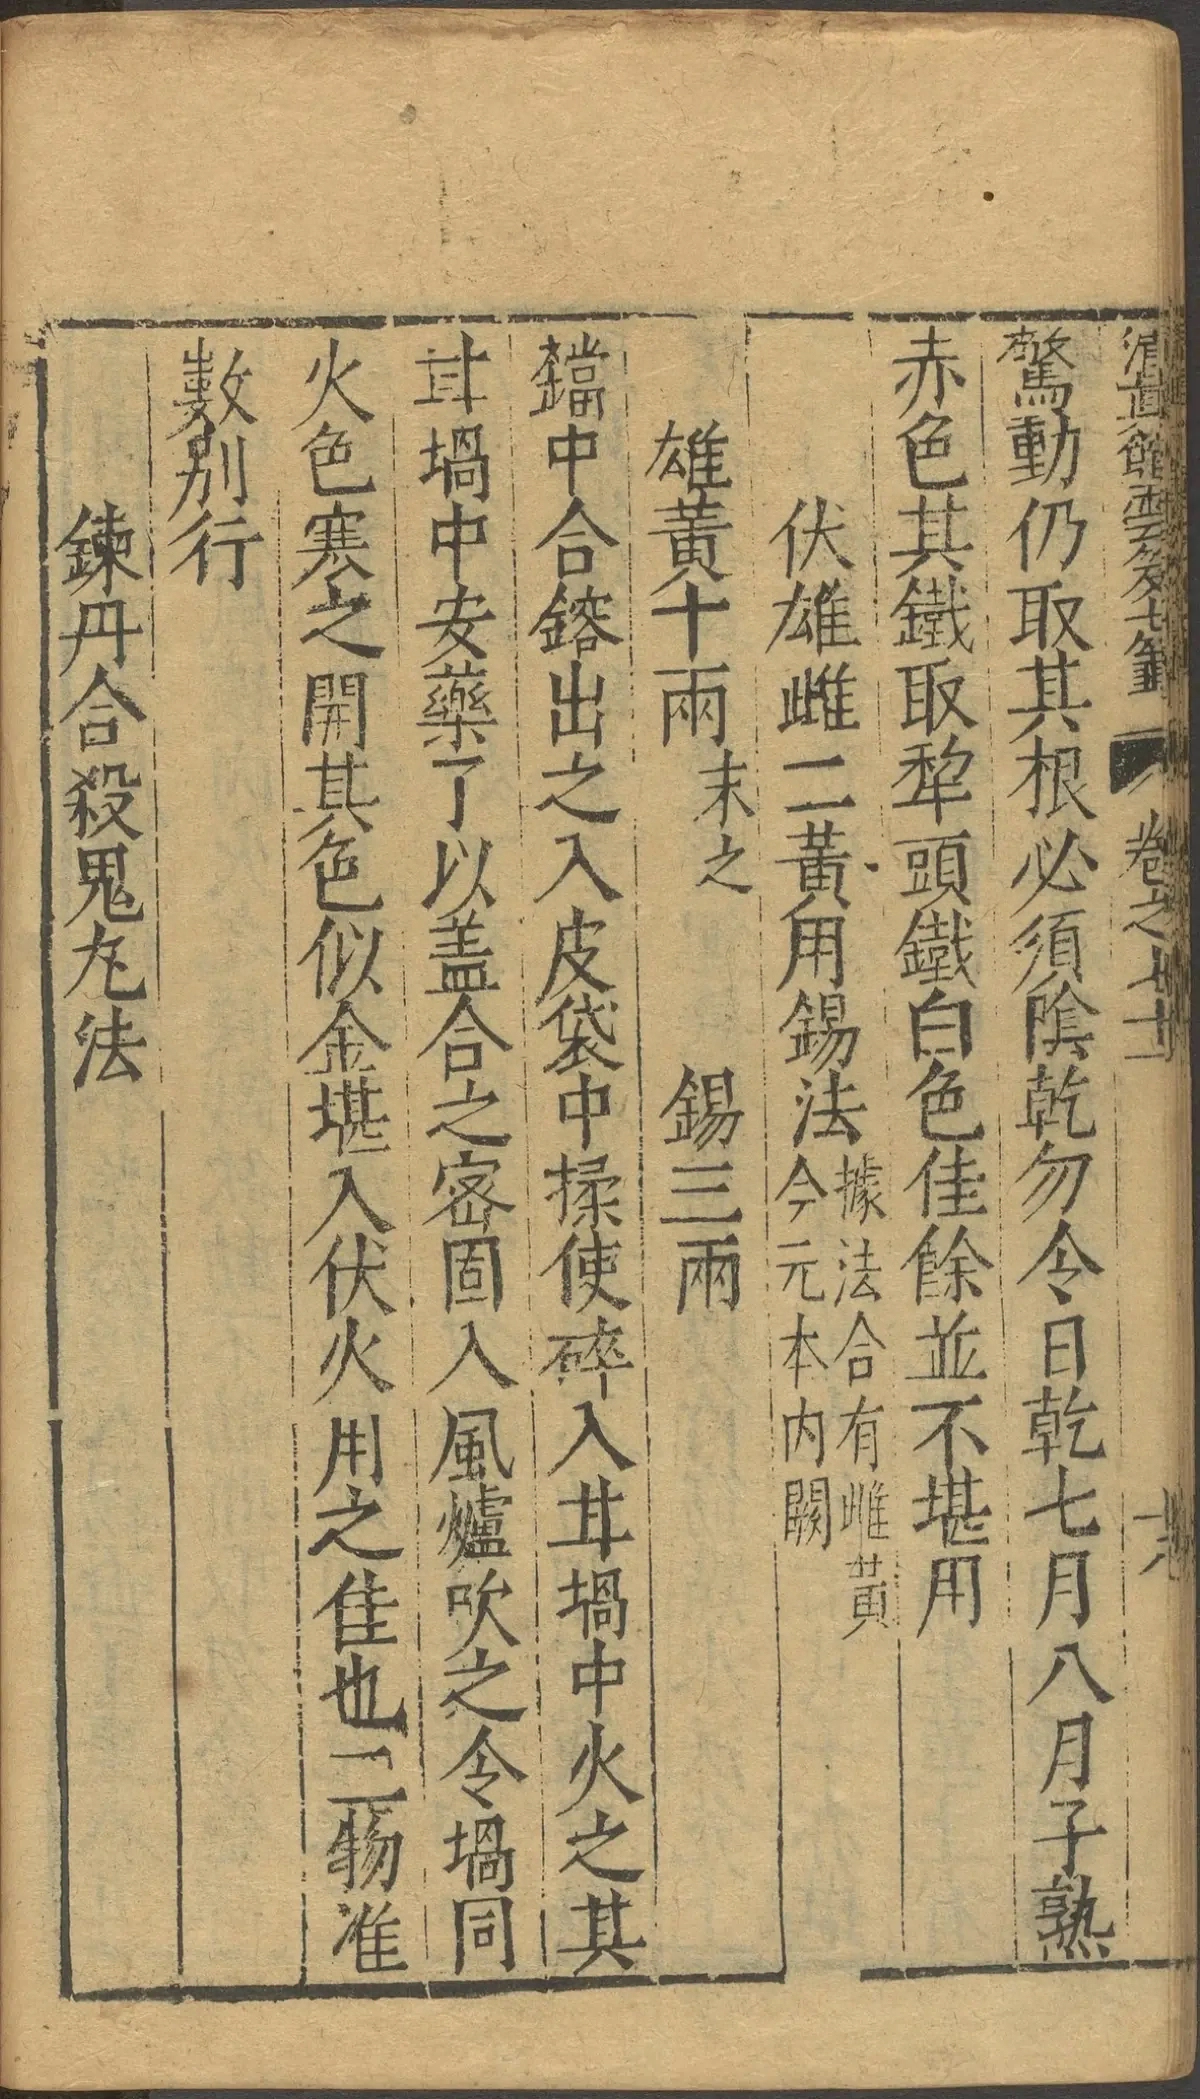 清真館雲笈七籤 卷之七十一 十九
驚動仍取其根必須陰乾勿令日乾七月八月子熟
赤色其鐵取犂頭鐵白色佳餘並不堪用
伏雄雌二黃用錫法據法合有雌黃今元本內闕
雄黃十兩末之 錫三兩
鐺中合鎔出之入皮袋中揉使碎入坩堝中火之其
坩堝中安藥了以盖合之密固入風爐吹之令堝同
火色寒之開其色似金堪入伏火用之佳也二物准
數別行
鍊丹合殺鬼丸法